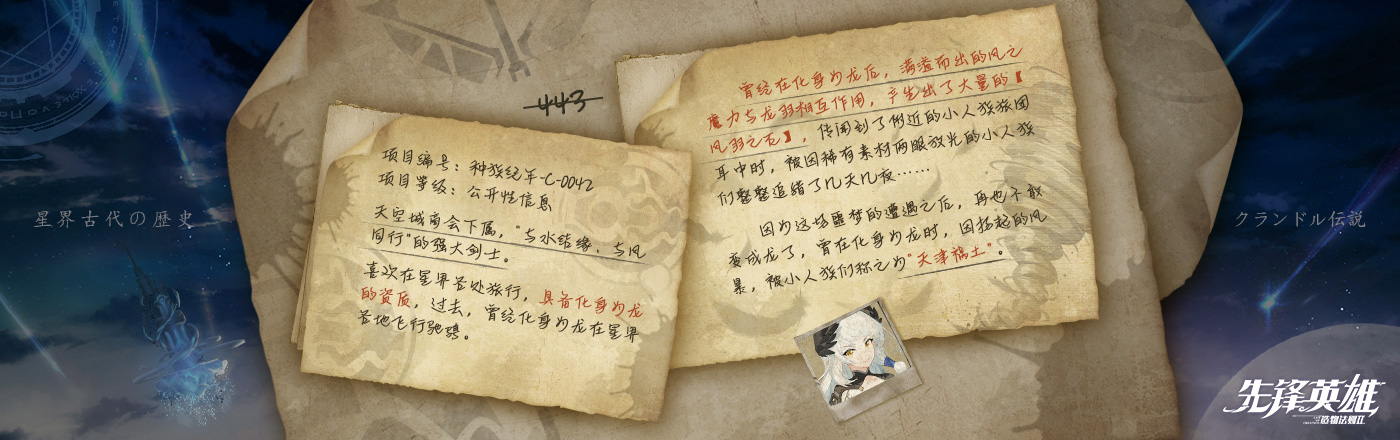 星界古代の歴史
443
项目编号：种族纪年-C-0042
项目等级：公开性信息
天空城商会下属，"与水结缘、与风
同行"的强大剑士。
喜欢在星界各处旅行，具备化身为龙
的资质，过去，曾经化身为龙在星界
各地飞行驰骋。
曾经在化身为龙后，满溢而出的风之
魔力与龙羽相互作用，产生出了大量的【
风羽之石】，传闻到了附近的小人族旅团
耳中时，被因稀有素材两眼放光的小人族
们整整追赌了几天几夜……
因为这场噩梦的遭遇之后，再也不敢
变成龙了，曾在化身为龙时，因扬起的风
暴，被小人族们称之为"天津禍土"。
クランドル伝説
先锋英雄
造物法则II